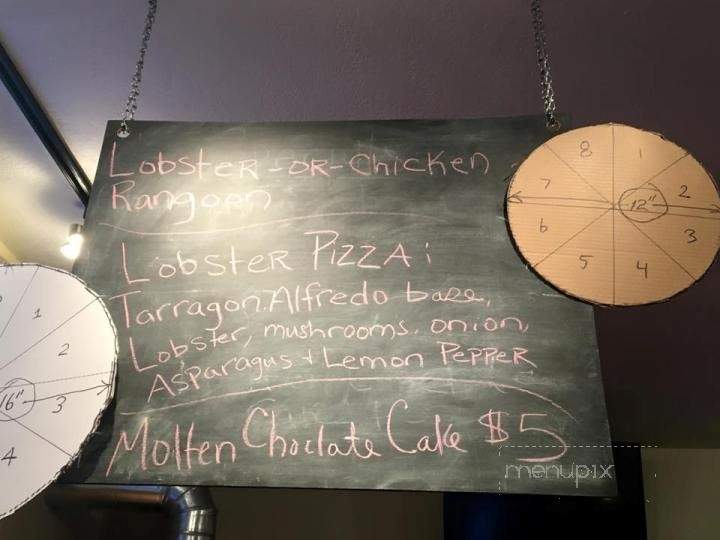 Lobster-or-Chicken
Rangoon
Lobster Pizza:
Tarragon Alfredo base,
Lobster, mushrooms, onion,
Asparagus + Lemon Pepper
Molten Choclate Cake $5
8 1
7 2
6 3
5 4
12"
1
2
16" 3
4
menupix